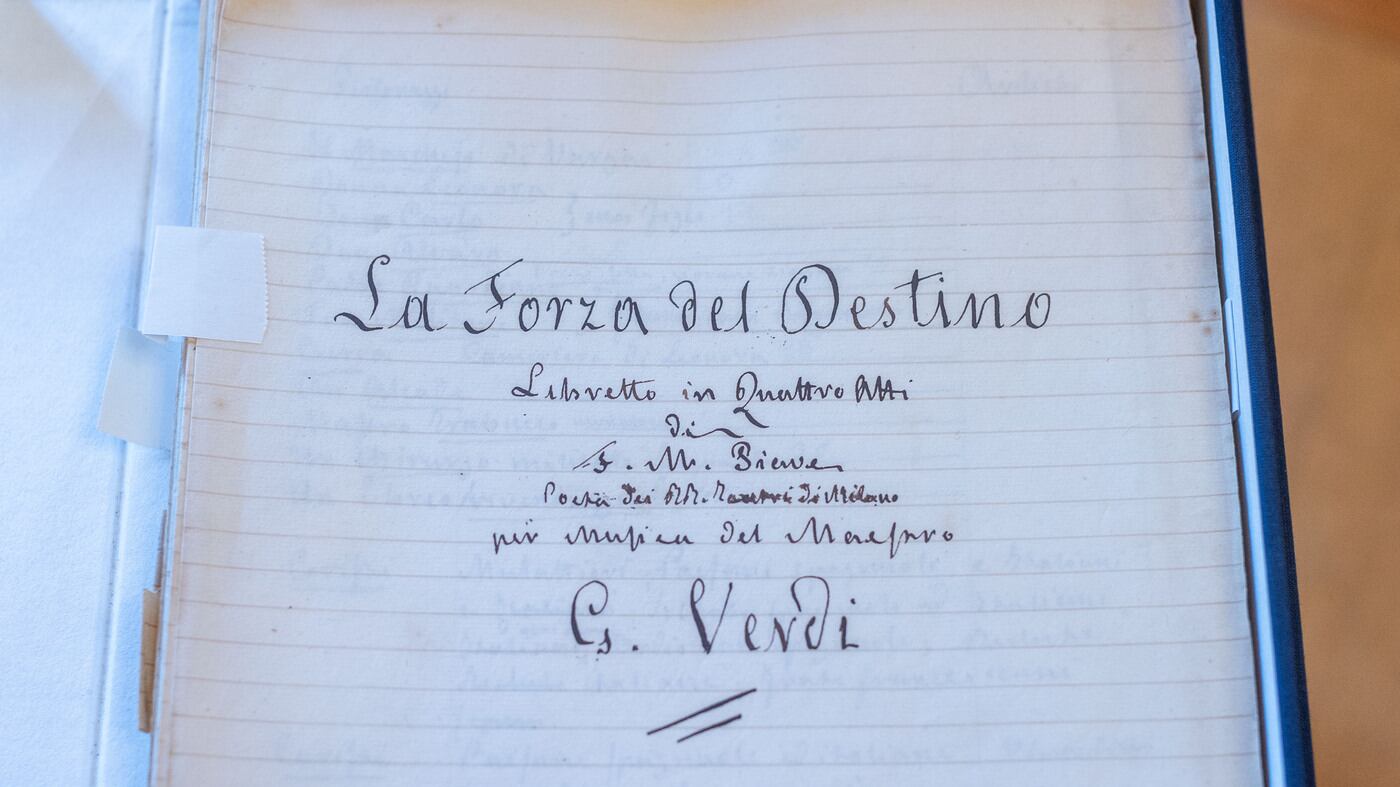 La Forza del Destino
Libretto in Quattro Atti
di
F. M. Piave
Poeta dei RR. Teatri di Milano
per Musica del Maestro
G. Verdi